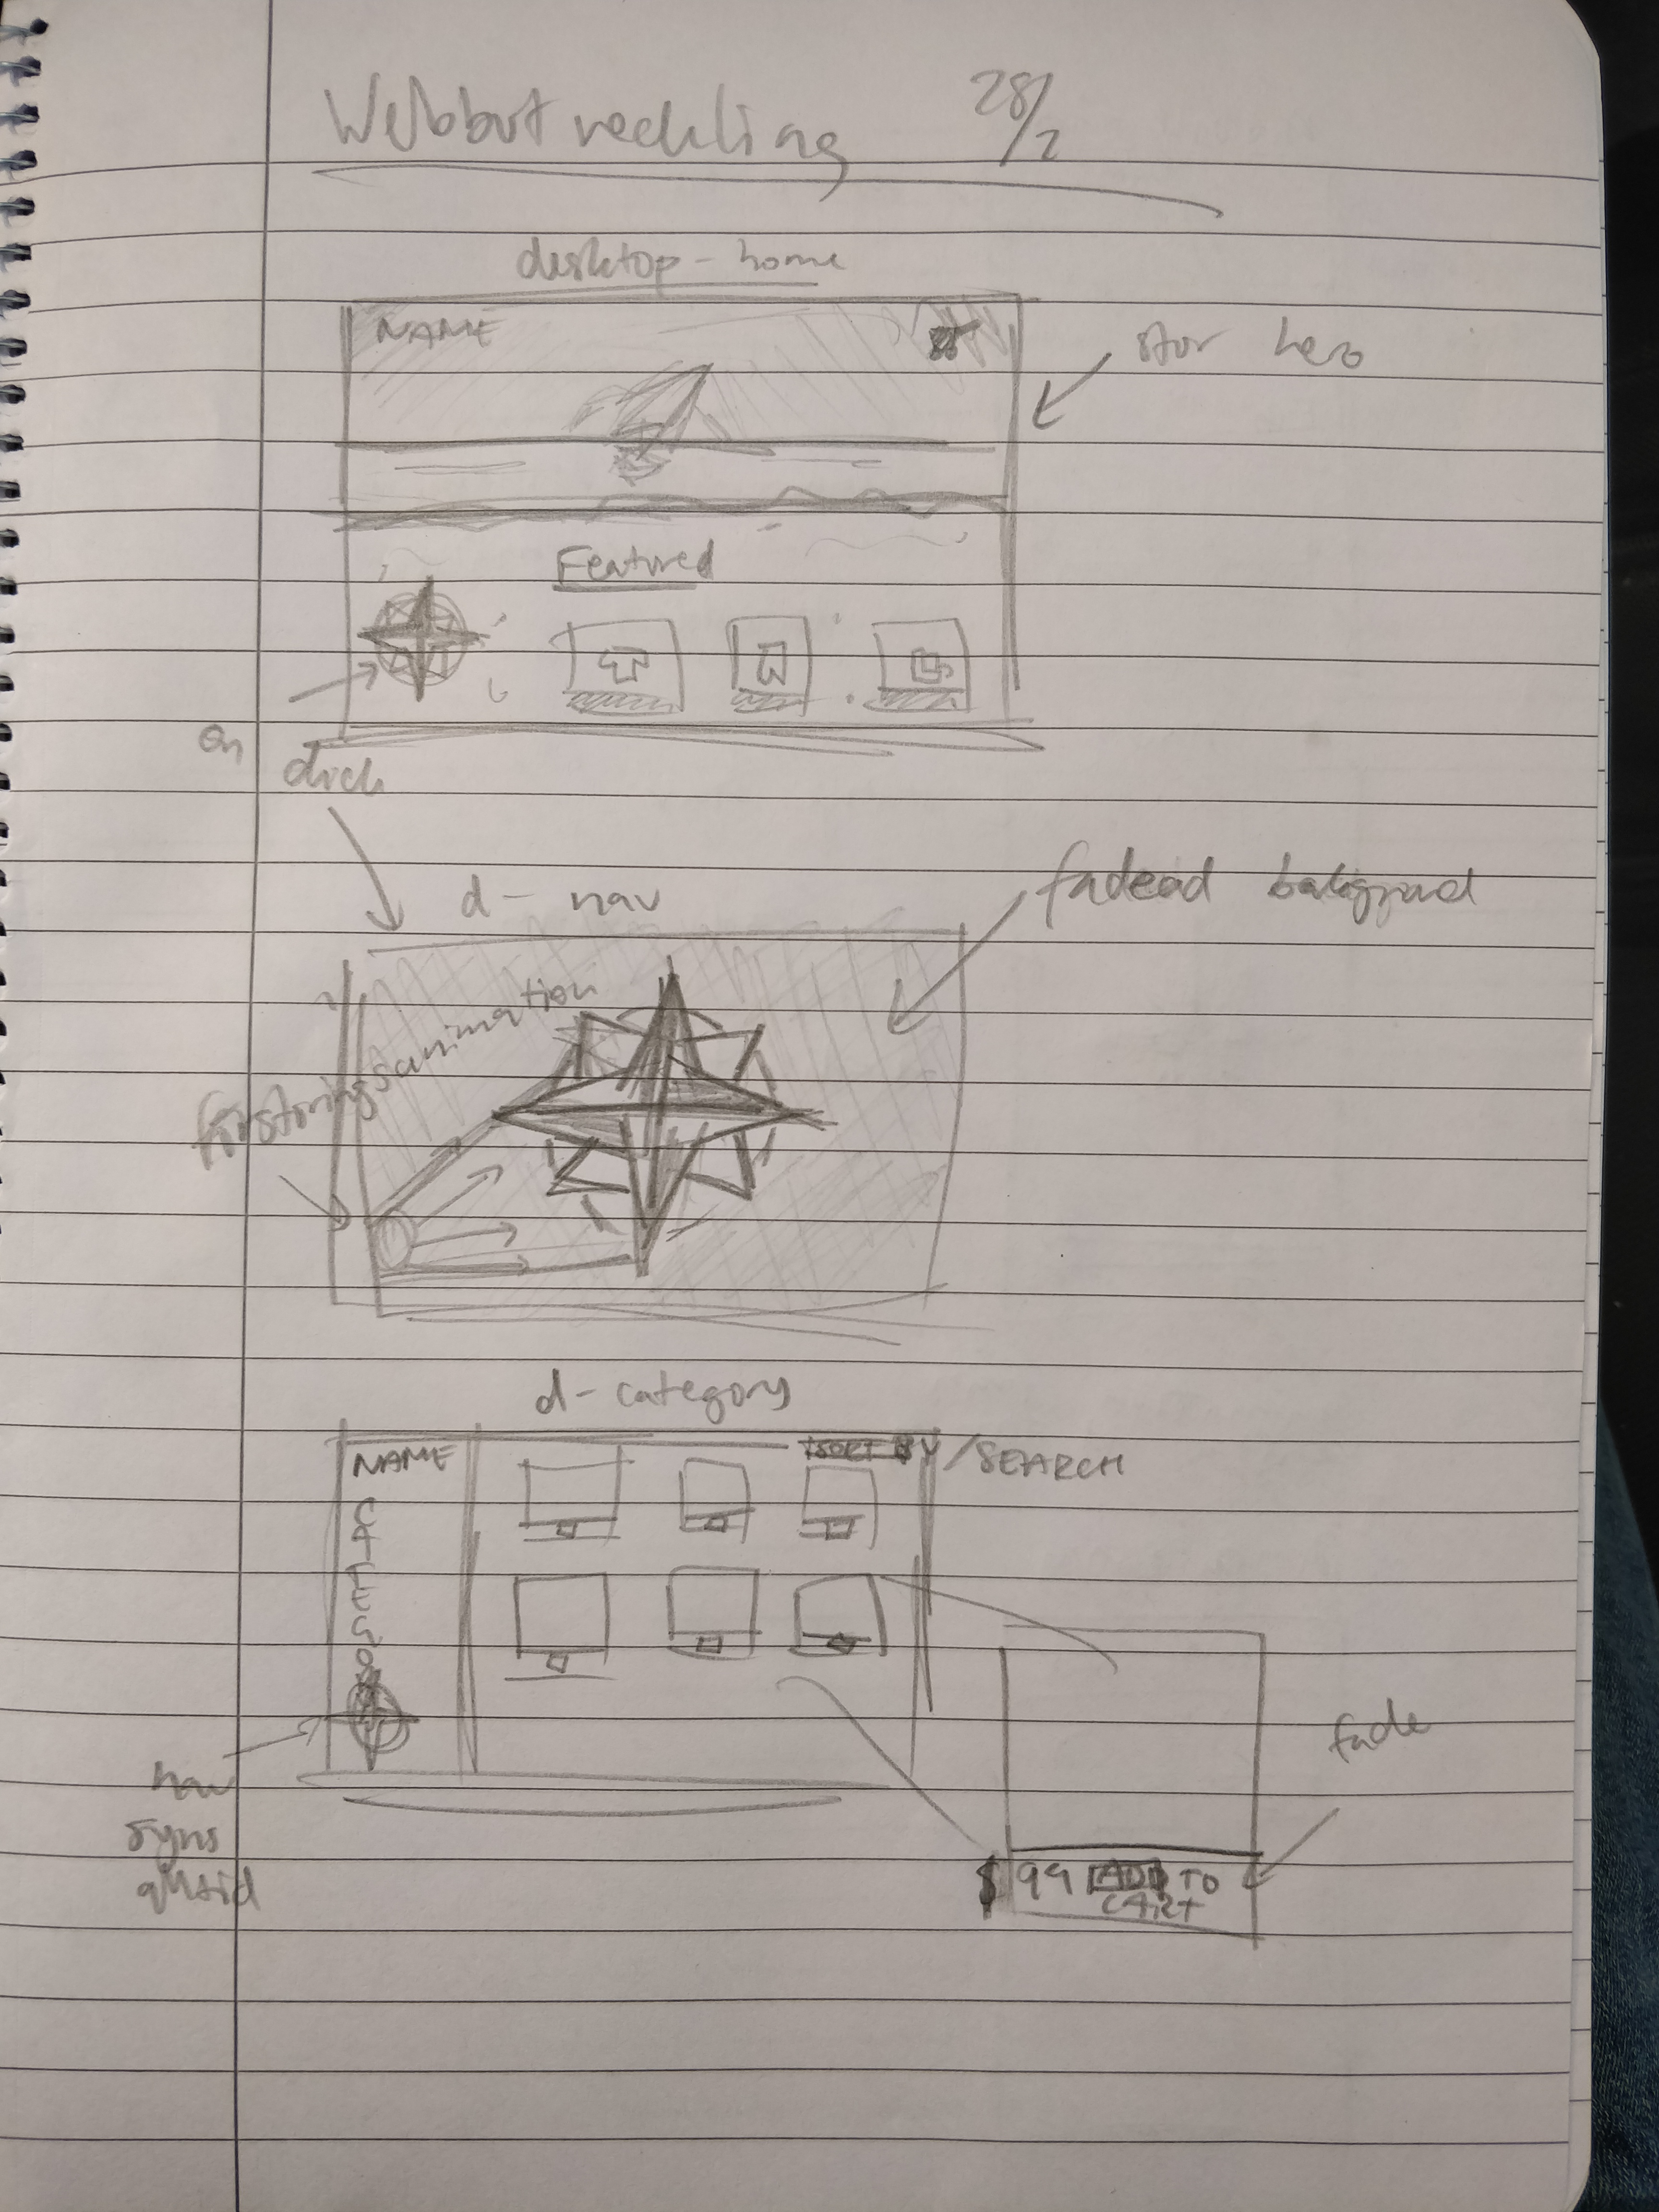 Webbutveckling 28/2
desktop - home
NAME
stor hero
Featured
on
click
d - nav
fadead bakgrund
förstoringsanimation
d - category
NAME
SORT BY / SEARCH
CATEGORY
nav
syns
alltid
fade
$ 99 ADD TO
CART